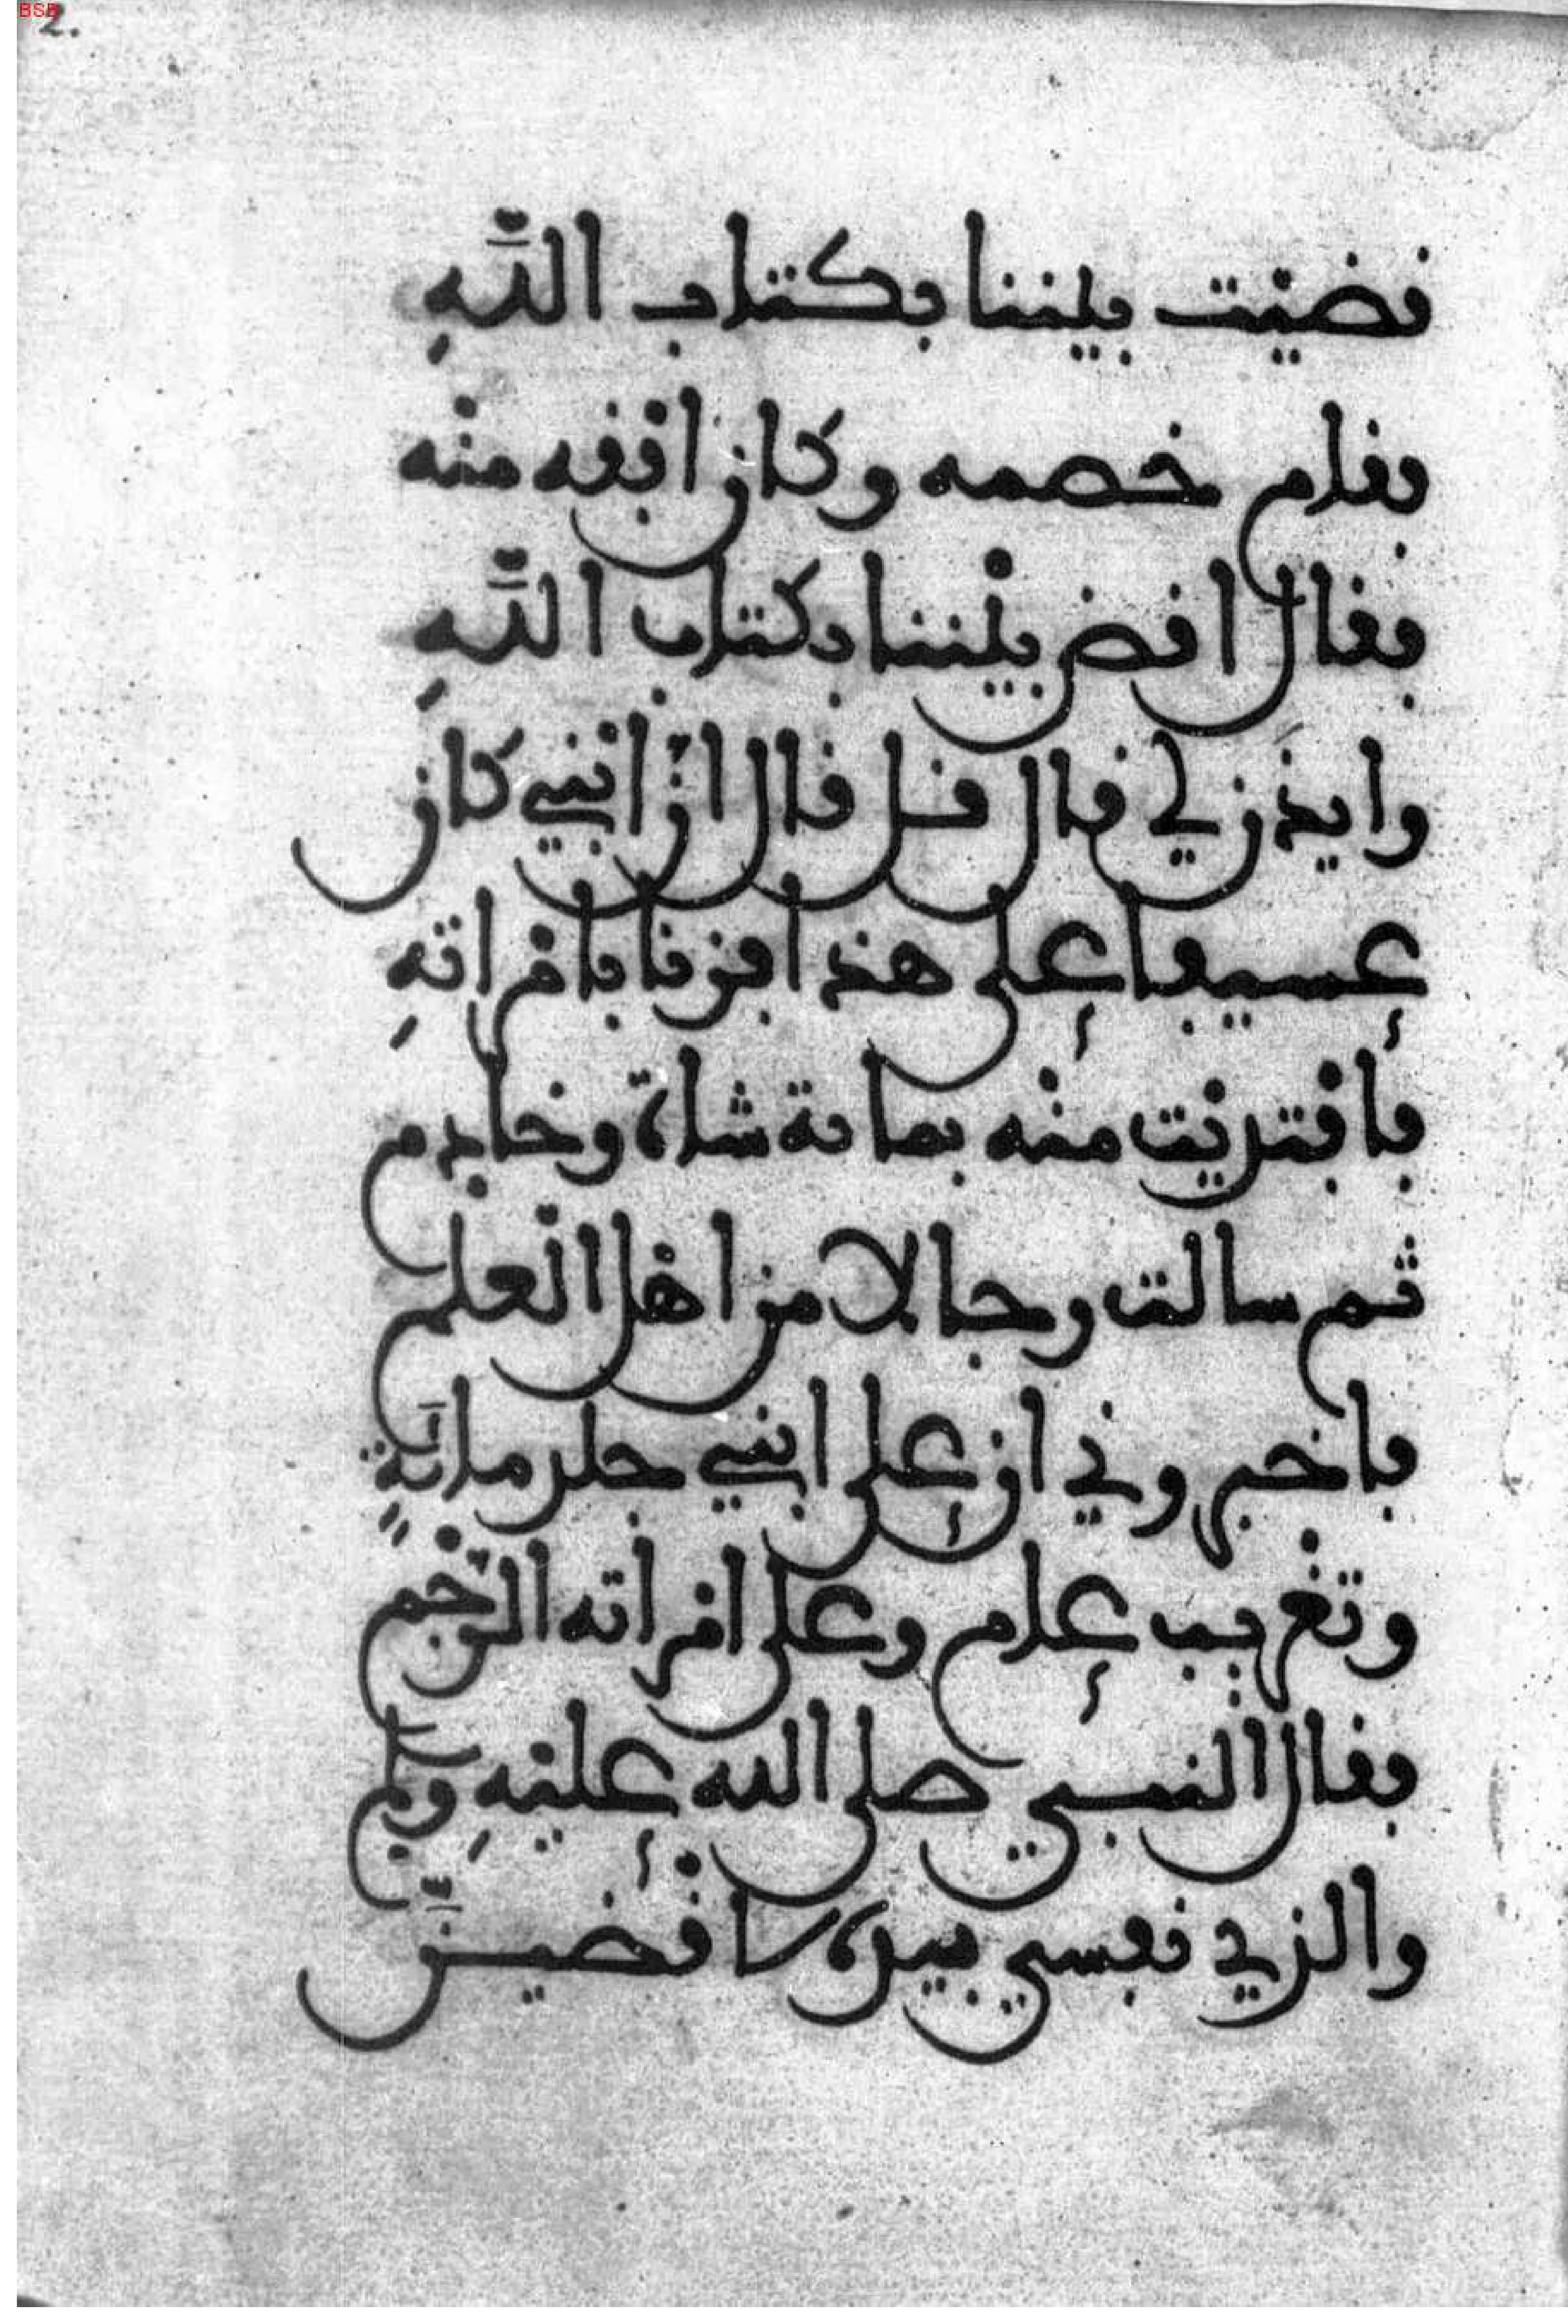 BSB
2.
قضيْت بيْننا بكتاب اللّٰهِ
فقام خصمه وكان اڢْقه منْه
فقال اقض بيْننا بكتاب اللّٰهِ
وايذن لي قال قل قال انّ ابْني كان
عسيفا على هذا فزنا بامْراتهِ
فافْتديْت منْه بمائة شاة وخادم
ثم سالت رجالا من اهْل الْعلم
فاخبروني ان على ابني جلد مائَةٍ
وتغْريب عام وعلى امْراته الرّجْم
فقال النبي صلى الله عليْهِ وسلم
والذي نفسي بيده لاقْضينَّ